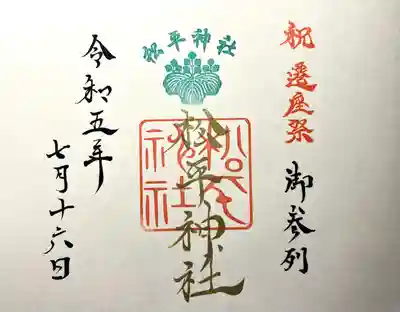 祝 遷座祭
御参列
松平神社
松平神社
松平神社
令和五年
七月十六日